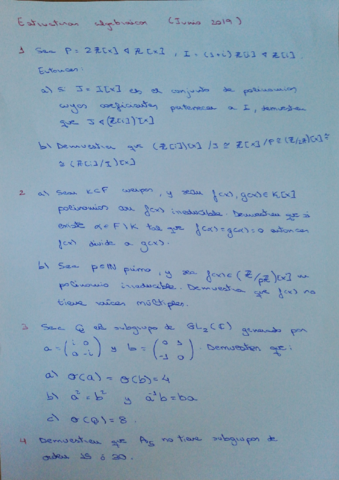 Estructuras algebraicas (Junio 2019)
1 Sea P = 2ℤ[x] ◁ ℤ[x], I = (1+i) ℤ[i] ◁ ℤ[i].
Entonces:
a) Si J = I[x] es el conjunto de polinomios
cuyos coeficientes pertenecen a I, demuestra
que J ◁ (ℤ[i])[x]
b) Demuestra que (ℤ[i])[x] / J ≅ ℤ[x]/P ≅ (ℤ/2ℤ)[x] ≅
2 a) Sean K⊂F cuerpos, y sean f(x), g(x) ∈ K[x]
polinomios con f(x) irreducible. Demuestra que si
existe α ∈ F\K tal que f(α)=g(α)=0 entonces
f(x) divide a g(x).
b) Sea p∈ℕ primo, y sea f(x) ∈ (ℤ/pℤ)[x] un
polinomio irreducible. Demuestra que f(x) no
tiene raíces múltiples.
3 Sea Q el subgrupo de GL₂(ℂ) generado por
a = (i 0 / 0 -i) y b = (0 1 / -1 0). Demuestra que:
a) σ(a) = σ(b) = 4
b) a² = b² y a⁻¹b = ba
c) σ(Q) = 8.
4 Demuestra que A₅ no tiene subgrupos de
orden 15 ó 30.